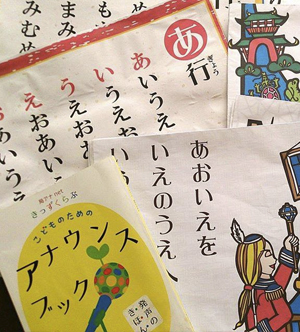 あ行
ぎょう
あいうえ
いうえお
うえおあ
えおあい
あいう
まみむ
みむめ
あおいえを
いえのうえ
きっずくらぶ
こどものための
アナウンス
ブック
発声の
き・ほ・ん